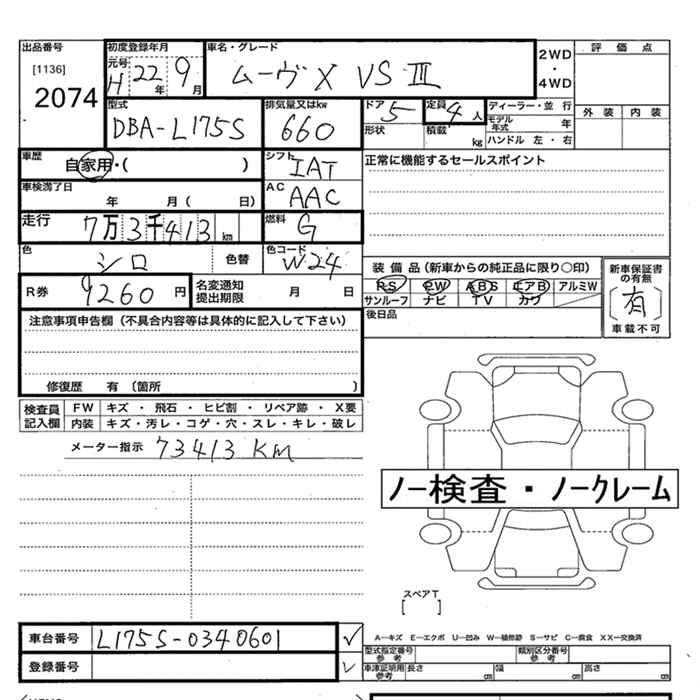 出品番号
[1136]
2074
初度登録年月
元号
H 22年 9月
車名・グレード
ムーヴX VSⅢ
2WD
・
4WD
評価点
外装 内装
型式
DBA-L175S
排気量又はkw
660
ドア
5
定員
4人
ディーラー・並 行
形状
積載
kg
モデル年式
年
ハンドル 左・右
車歴
自家用・( )
シフト
IAT
正常に機能するセールスポイント
車検満了日
年 月( 日)
AC
AAC
走行
7万3千413km
燃料
G
色
シロ
色替
色コード
W24
装備品(新車からの純正品に限り○印)
PS PW ABS エアB アルミW
サンルーフ ナビ TV カワ
新車保証書の有無
[有]
車載不可
R券
9260円
名変通知
提出期限
月 日
後日品
注意事項申告欄(不具合内容等は具体的に記入して下さい)
修復歴 有〔箇所 〕
検査員記入欄
FW キズ・飛石・ヒビ割・リペア跡・X要
内装 キズ・汚レ・コゲ・穴・スレ・キレ・破レ
メーター指示 73413 KM
ノー検査・ノークレーム
スペアT
[ ]
車台番号
L175S-0340601
登録番号
A―キズ E―エクボ U―凹み W―補修跡 S―サビ C―腐食 XX―交換済
型式指定番号
参考
類別区分番号
参考
車庫証明用
参考
長さ cm 幅 cm 高さ cm